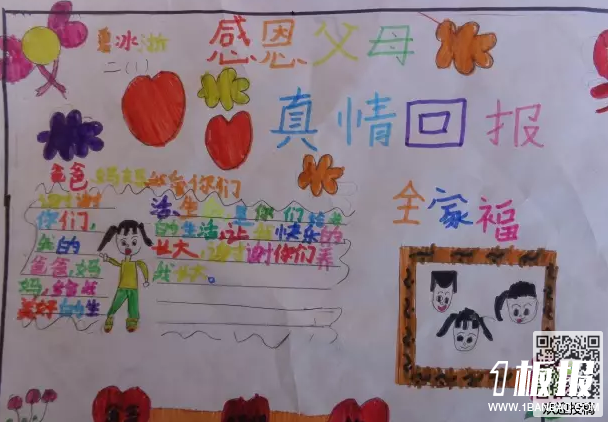 冰浙
二(1)
感恩父母
真情回报
爸爸,妈妈我爱你们
谢谢
你们,
我的
爸爸,妈
妈,
美好的生
活,生
的生活,让我快乐的
长大,谢谢你们养
我长大。
全家福
1板报
WWW.1BANBAO.COM